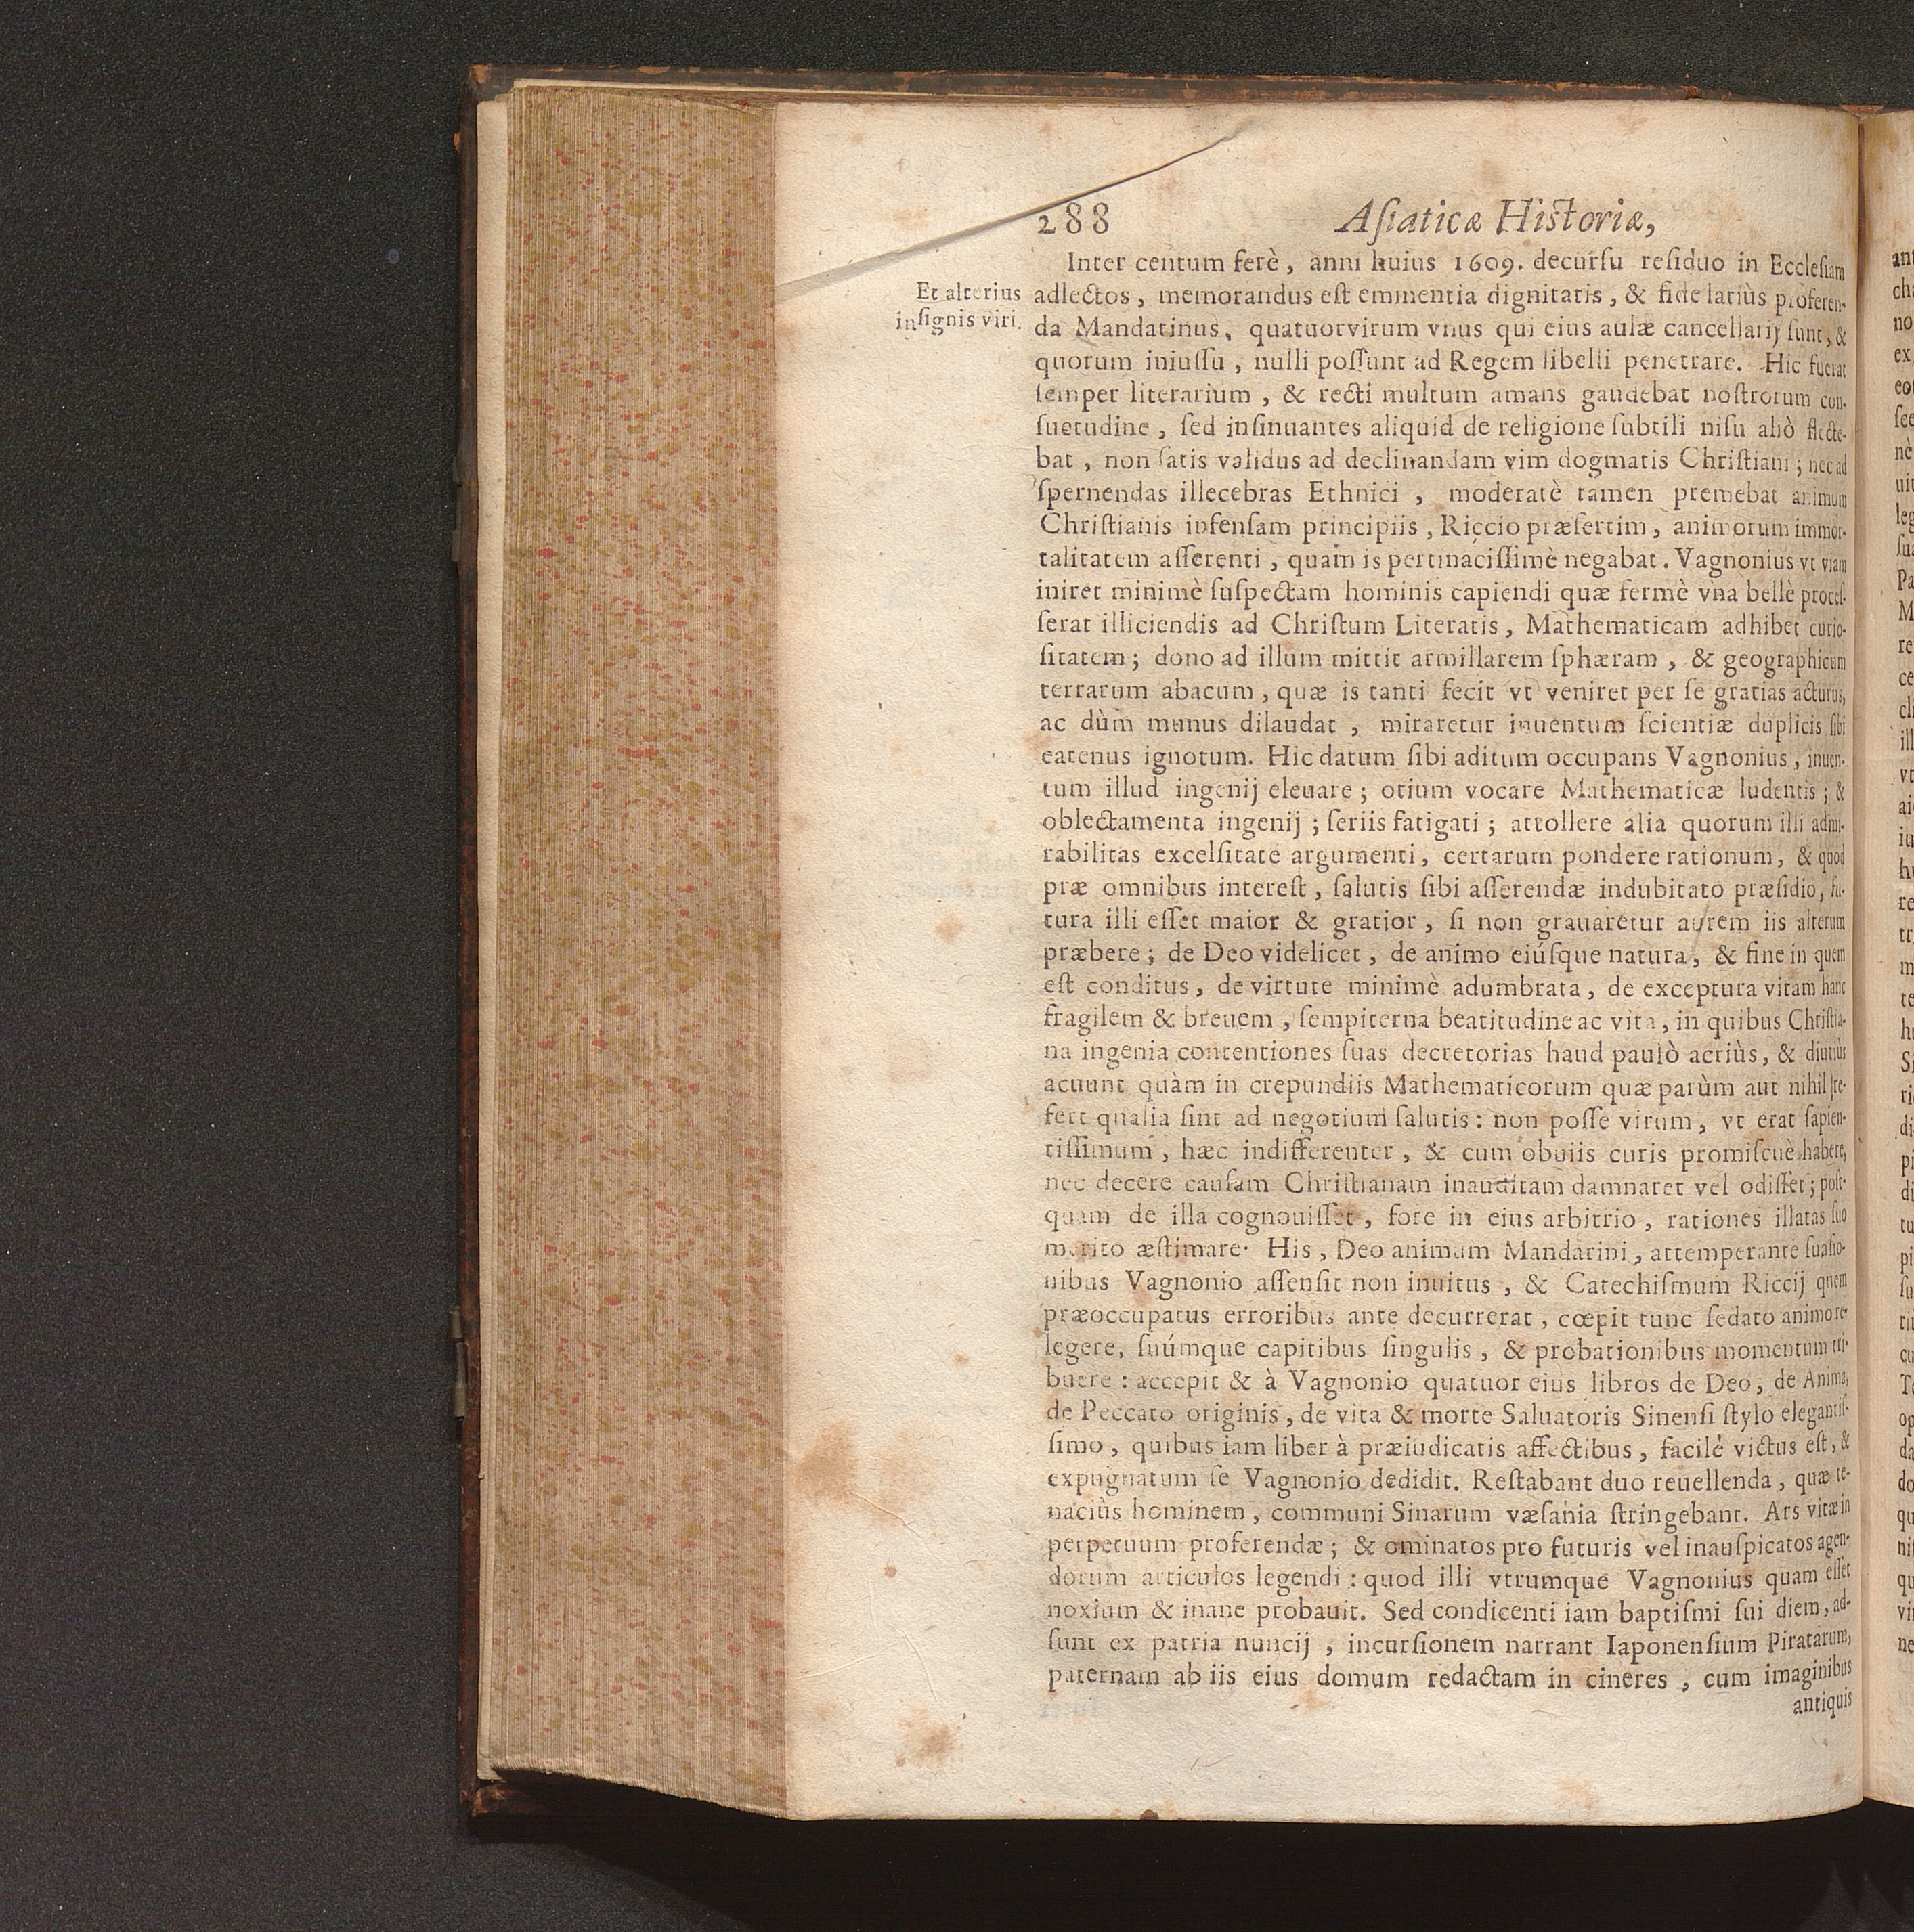 288 Aſiaticæ Hiſtoriæ,
Et alterius
inſignis viri.
Inter centum ferè, anni huius 1609. decurſu reſiduo in Eccleſiam
adlectos, memorandus eſt eminentia dignitatis, & fide latiùs proferen-
da Mandatinus, quatuorvirum vnus qui eius aulæ cancellarij ſunt, &
quorum iniuſſu, nulli poſſunt ad Regem libelli penetrare. Hic fuerat
ſemper literarium, & recti multum amans gaudebat noſtrorum con-
ſuetudine, ſed inſinuantes aliquid de religione ſubtili niſu aliò flecte-
bat, non ſatis validus ad declinandam vim dogmatis Chriſtiani; nec ad
ſpernendas illecebras Ethnici, moderatè tamen premebat animum
Chriſtianis infenſam principiis, Riccio præſertim, animorum immor-
talitatem aſſerenti, quam is pertinaciſſimè negabat. Vagnonius vt viam
iniret minimè ſuſpectam hominis capiendi quæ fermè vna bellè proceſ-
ſerat illiciendis ad Chriſtum Literatis, Mathematicam adhibet curio-
ſitatem; dono ad illum mittit armillarem ſphæram, & geographicum
terrarum abacum, quæ is tanti fecit vt veniret per ſe gratias acturus,
ac dùm munus dilaudat, miraretur inuentum ſcientiæ duplicis ſibi
eatenus ignotum. Hic datum ſibi aditum occupans Vagnonius, inuen-
tum illud ingenij eleuare; otium vocare Mathematicæ ludentis; &
oblectamenta ingenij; ſeriis fatigati; attollere alia quorum illi admi-
rabilitas excelſitate argumenti, certarum pondere rationum, & quod
præ omnibus intereſt, ſalutis ſibi aſſerendæ indubitato præſidio, fu-
tura illi eſſet maior & gratior, ſi non grauaretur aurem iis alteram
præbere; de Deo videlicet, de animo eiúſque natura, & fine in quem
eſt conditus, de virtute minimè adumbrata, de exceptura vitam hanc
fragilem & breuem, ſempiterna beatitudine ac vita, in quibus Chriſtia-
na ingenia contentiones ſuas decretorias haud paulò acriùs, & diutiùs
acuunt quàm in crepundiis Mathematicorum quæ parùm aut nihil re-
fert qualia ſint ad negotium ſalutis: non poſſe virum, vt erat ſapien-
tiſſimum, hæc indifferenter, & cum obuiis curis promiſcuè habere,
nec decere cauſam Chriſtianam inauditam damnaret vel odiſſet; poſt-
quam de illa cognouiſſet, fore in eius arbitrio, rationes illatas ſuo
merito æſtimare. His, Deo animum Mandarini, attemperante ſuaſio-
nibus Vagnonio aſſenſit non inuitus, & Catechiſmum Riccij quem
præoccupatus erroribus ante decurrerat, cœpit tunc ſedato animo re-
legere, ſuúmque capitibus ſingulis, & probationibus momentum tri-
buere: accepit & à Vagnonio quatuor eius libros de Deo, de Anima,
de Peccato originis, de vita & morte Saluatoris Sinenſi ſtylo elegantiſ-
ſimo, quibus iam liber à præiudicatis affectibus, facilè victus eſt, &
expugnatum ſe Vagnonio dedidit. Reſtabant duo reuellenda, quæ te-
naciùs hominem, communi Sinarum væſania ſtringebant. Ars vitæ in
perpetuum proferendæ; & ominatos pro futuris vel inauſpicatos agen-
dorum articulos legendi: quod illi vtrumque Vagnonius quam eſſet
noxium & inane probauit. Sed condicenti iam baptiſmi ſui diem, ad-
ſunt ex patria nuncij, incurſionem narrant Iaponenſium Piratarum,
paternam ab iis eius domum redactam in cineres, cum imaginibus
antiquis